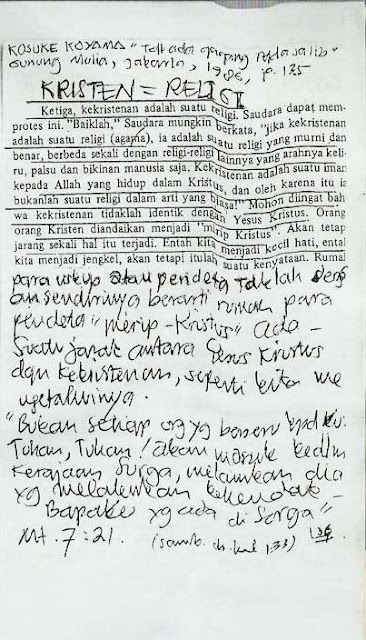 KOSUKE KOYAMA "Tak ada gagang pada salib"
Gunung Mulia, Jakarta, 1986, p. 135
KRISTEN = RELIGI
Ketiga, kekristenan adalah suatu religi. Saudara dapat mem-
protes ini. "Baiklah," Saudara mungkin berkata, "jika kekristenan
adalah suatu religi (agama), ia adalah suatu religi yang murni dan
benar, berbeda sekali dengan religi-religi lainnya yang arahnya keli-
ru, palsu dan bikinan manusia saja. Kekristenan adalah suatu iman
kepada Allah yang hidup dalam Kristus, dan oleh karena itu ia
bukanlah suatu religi dalam arti yang biasa!" Mohon diingat bah
wa kekristenan tidaklah identik dengan Yesus Kristus. Orang
orang Kristen diandaikan menjadi "mirip Kristus". Akan tetap
jarang sekali hal itu terjadi. Entah kita menjadi kecil hati, ental
kita menjadi jengkel, akan tetapi itulah suatu kenyataan. Rumal
para uskup atau pendeta taklah deng
an sendirinya berarti rumah para
pendeta "mirip-Kristus" ada-
Suatu jarak antara Yesus Kristus
dan kekristenan, seperti kita me
ngetahuinya.
"Bukan setiap org yg berseru kpd Ku:
Tuhan, Tuhan! akan masuk kedlm
Kerajaan Surga, melainkan dia
yg melakukan kehendak-
Bapaku yg ada di Sorga"-
Mt. 7:21. (samb. dr. hal 133) 136